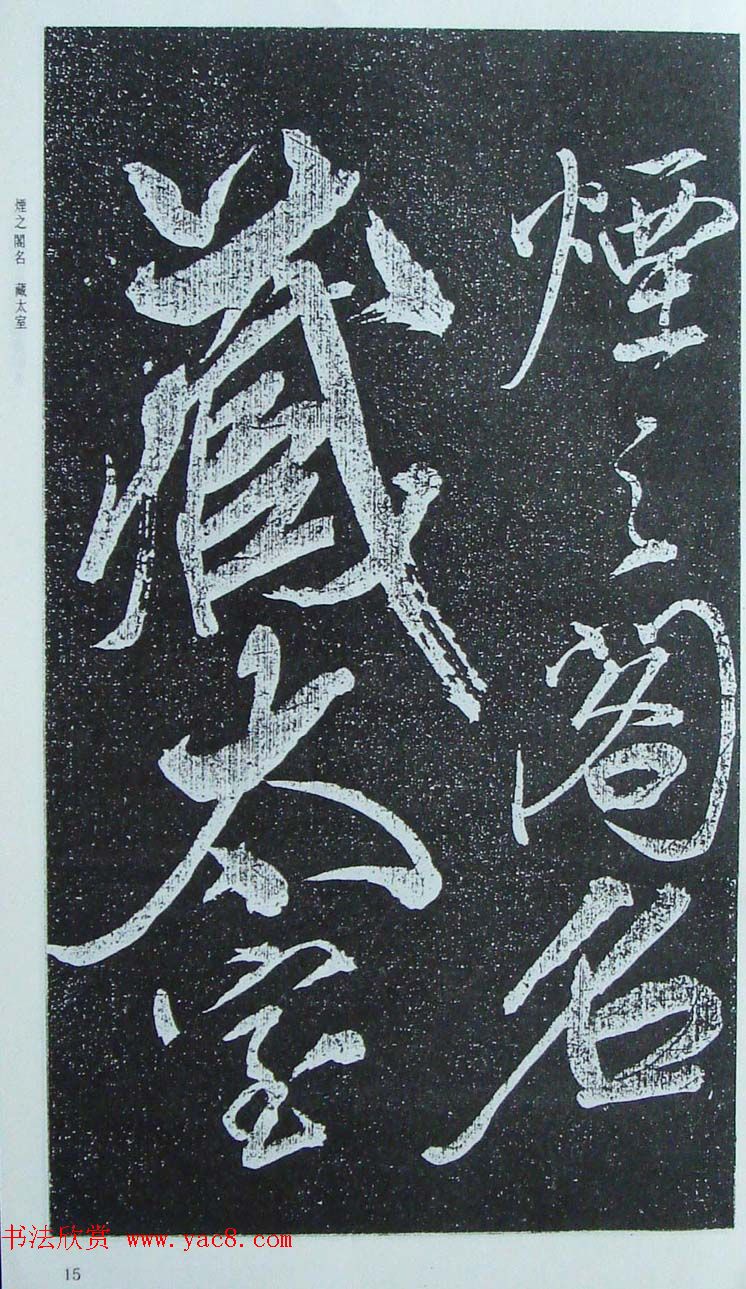 煙之閣名
藏太室
煙之閣名 藏太室
书法欣赏 www.yac8.com
15